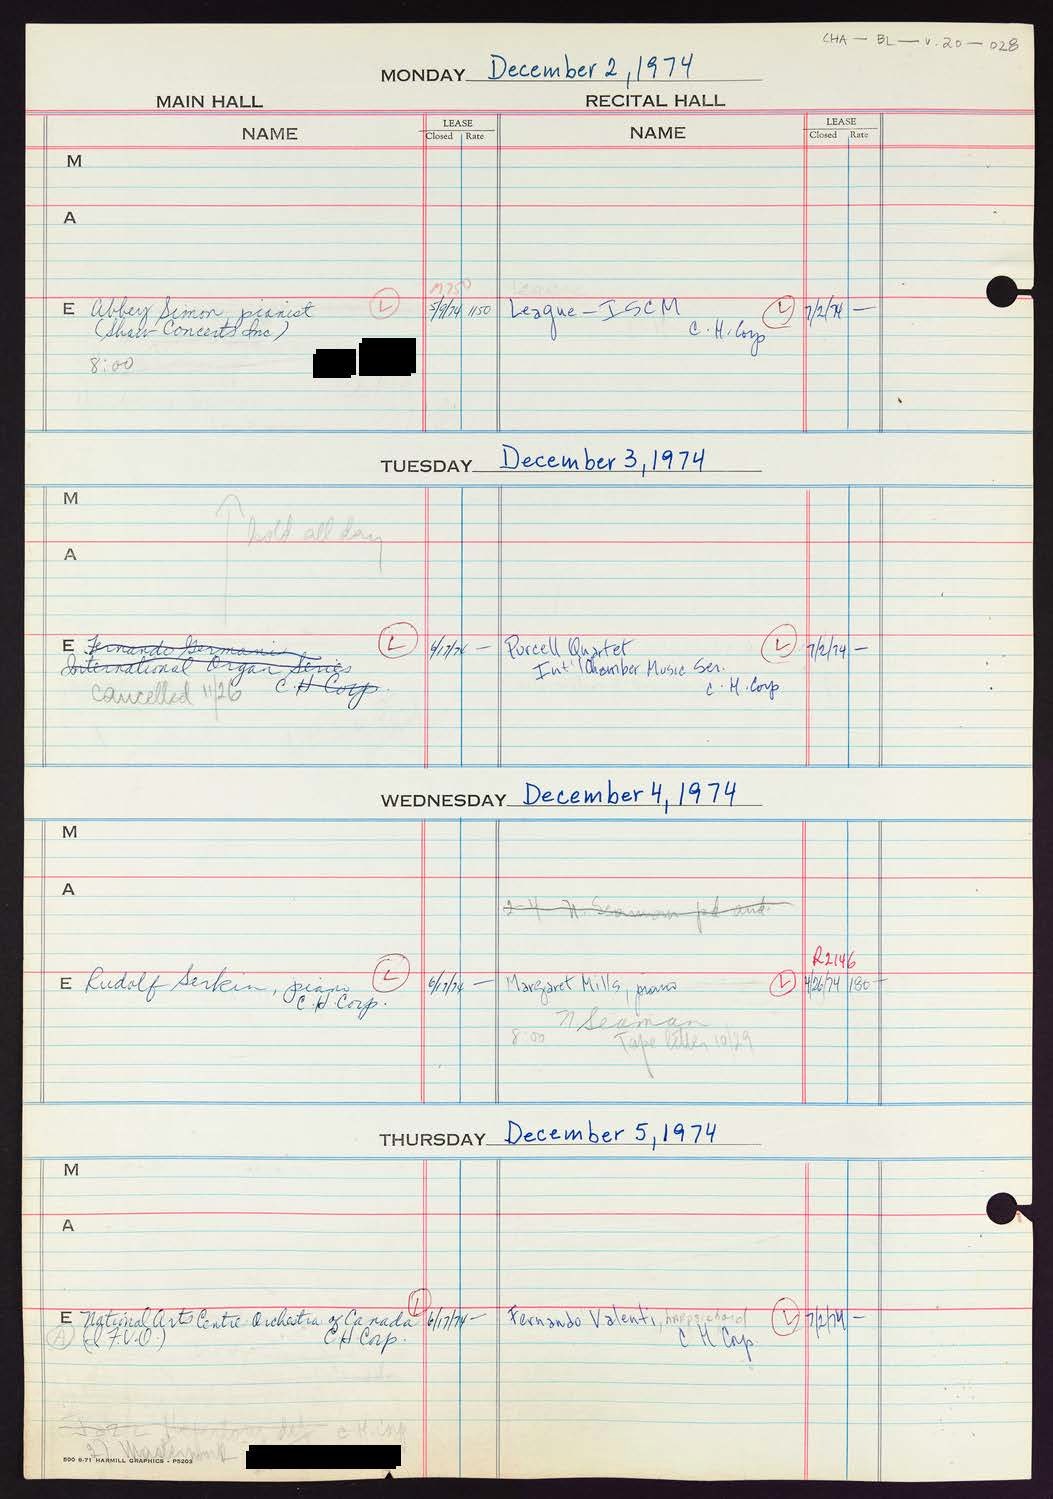 CHA - BL - v.20 - 028
MONDAY December 2, 1974
MAIN HALL RECITAL HALL
NAME LEASE Closed Rate NAME LEASE Closed Rate
M
A
E Abbey Simon, pianist L 5/9/74 1150 League - ISCM L 7/2/74 —
(Shaw Concerts Inc) C.H. Corp
8:00
TUESDAY December 3, 1974
M
hold all day
A
E Fernando Germani L 6/17/74 — Purcell Quartet L 7/2/74 —
International Organ Series Int'l Chamber Music Ser.
cancelled 11/26 C.H Corp. C.H. Corp
WEDNESDAY December 4, 1974
M
A
2-4 N. Seaman pd
R2146
E Rudolf Serkin, piano L 6/17/74 — Margaret Mills, piano L 4/26/74 180 —
C.H. Corp.
N Seaman
8:00 Tape letter 10/29
THURSDAY December 5, 1974
M
A
E National Arts Centre Orchestra of Canada L 6/17/74 — Fernando Valenti, harpsichord L 7/2/74 —
A (I.F.V.O.) C H Corp. C H Corp
C H Corp
500 6-71 HARMILL GRAPHICS - P5203